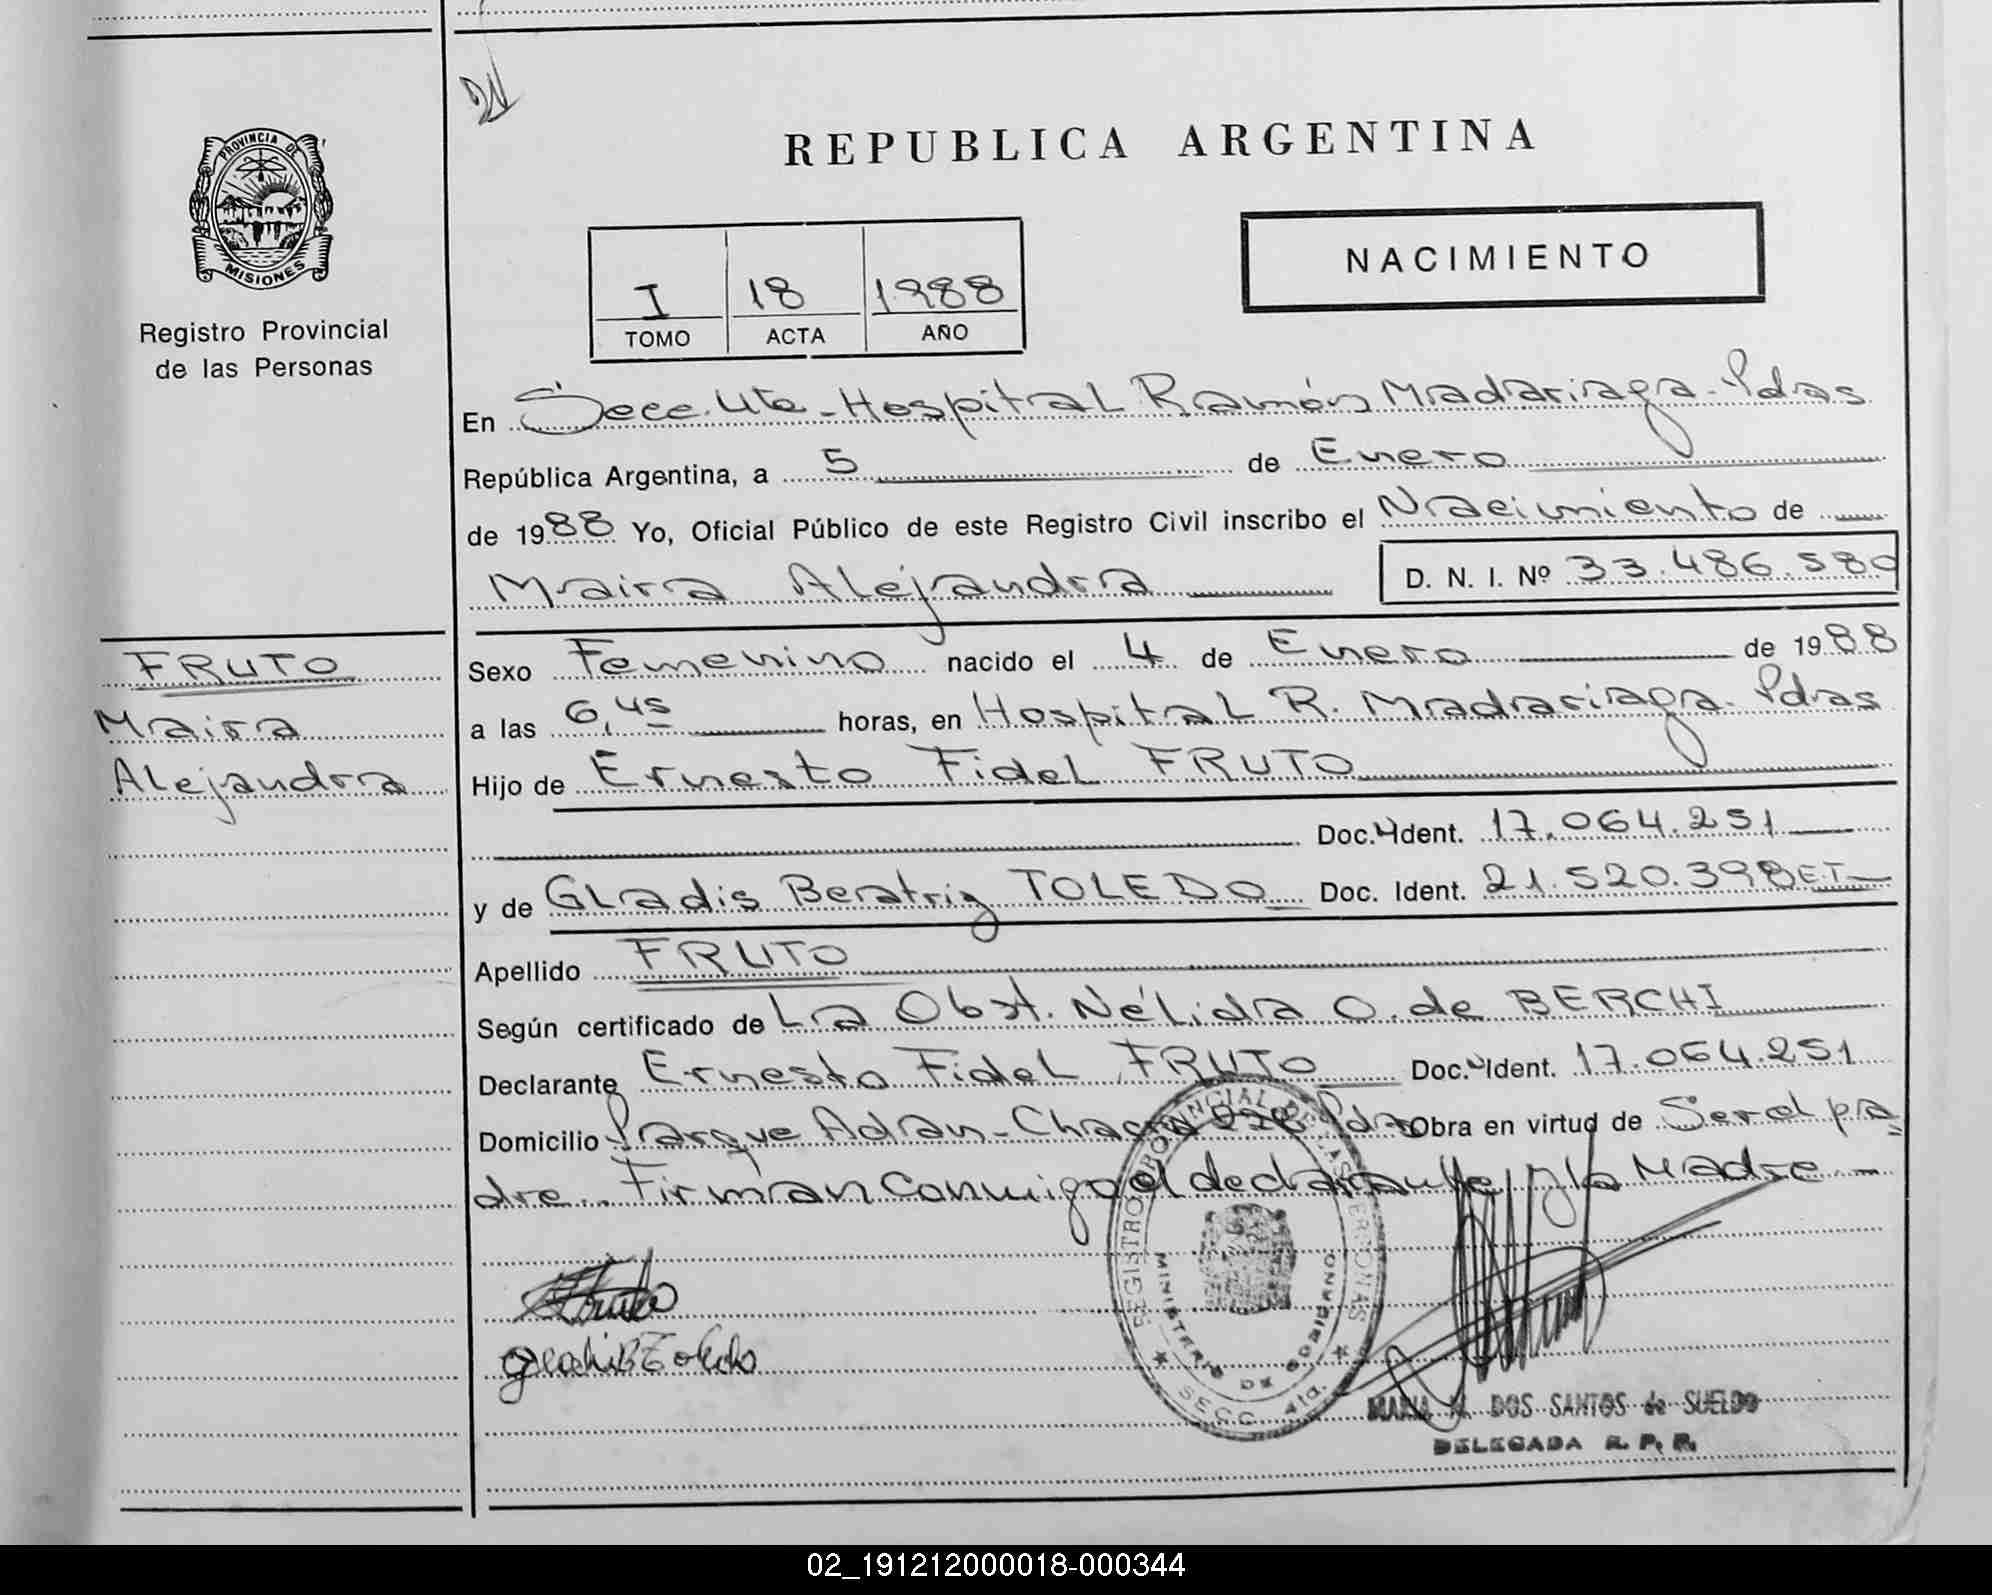 PROVINCIA DE
MISIONES
Registro Provincial
de las Personas
FRUTO
Maira
Alejandra
REPUBLICA ARGENTINA
I 18 1988
TOMO ACTA AÑO
NACIMIENTO
En Secc. 4ta - Hospital Ramón Madariaga - Pdas
República Argentina, a 5 de Enero
de 1988 Yo, Oficial Público de este Registro Civil inscribo el Nacimiento de
Maira Alejandra D. N. I. Nº 33.486.580
Sexo Femenino nacido el 4 de Enero de 1988
a las 6,45 horas, en Hospital R. Madariaga - Pdas
Hijo de Ernesto Fidel FRUTO
Doc. Ident. 17.064.251
y de GLadis Beatriz TOLEDO Doc. Ident. 21.520.398
Apellido FRUTO
Según certificado de La Obst. Nélida O. de BERCHI
Declarante Ernesto Fidel FRUTO Doc. Ident. 17.064.251
Domicilio Parque Adan - Chacra Pdas Obra en virtud de Ser el pa
dre.. Firman conmigo el declarante y la Madre
Gladis B Toledo
REGISTRO PROVINCIAL DE LAS PERSONAS
MINISTERIO DE GOBIERNO
SECC. 4ta.
MARIA M. DOS SANTOS de SUELDO
DELEGADA R. P. P.
02_191212000018-000344